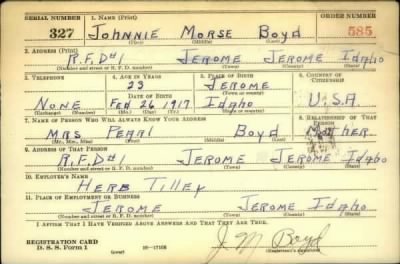 SERIAL NUMBER 1. NAME (Print) ORDER NUMBER
327 Johnnie Morse Boyd 585
(First) (Middle) (Last)
2. ADDRESS (Print)
R.F.D#1 Jerome Jerome Idaho
(Number and street or R. F. D. number) (Town) (County) (State)
3. TELEPHONE 4. AGE IN YEARS 5. PLACE OF BIRTH 6. COUNTRY OF CITIZENSHIP
23 Jerome
DATE OF BIRTH (Town or county)
None Feb 26 1917 Idaho U.S.A.
(Mo.) (Day) (Yr.) (State or country)
7. NAME OF PERSON WHO WILL ALWAYS KNOW YOUR ADDRESS 8. RELATIONSHIP OF THAT PERSON
Mrs Pearl Boyd Mother.
(Mr., Mrs., Miss) (First) (Middle) (Last)
9. ADDRESS OF THAT PERSON
R.F.D#1 Jerome Jerome Idaho
(Number and street or R. F. D. number) (Town) (County) (State)
10. EMPLOYER'S NAME
Herb Tilley
11. PLACE OF EMPLOYMENT OR BUSINESS
Jerome Jerome Idaho
(Number and street or R. F. D. number) (Town) (County) (State)
I AFFIRM THAT I HAVE VERIFIED ABOVE ANSWERS AND THAT THEY ARE TRUE.
REGISTRATION CARD J. M. Boyd
D. S. S. Form 1 (over) (Registrant's signature)